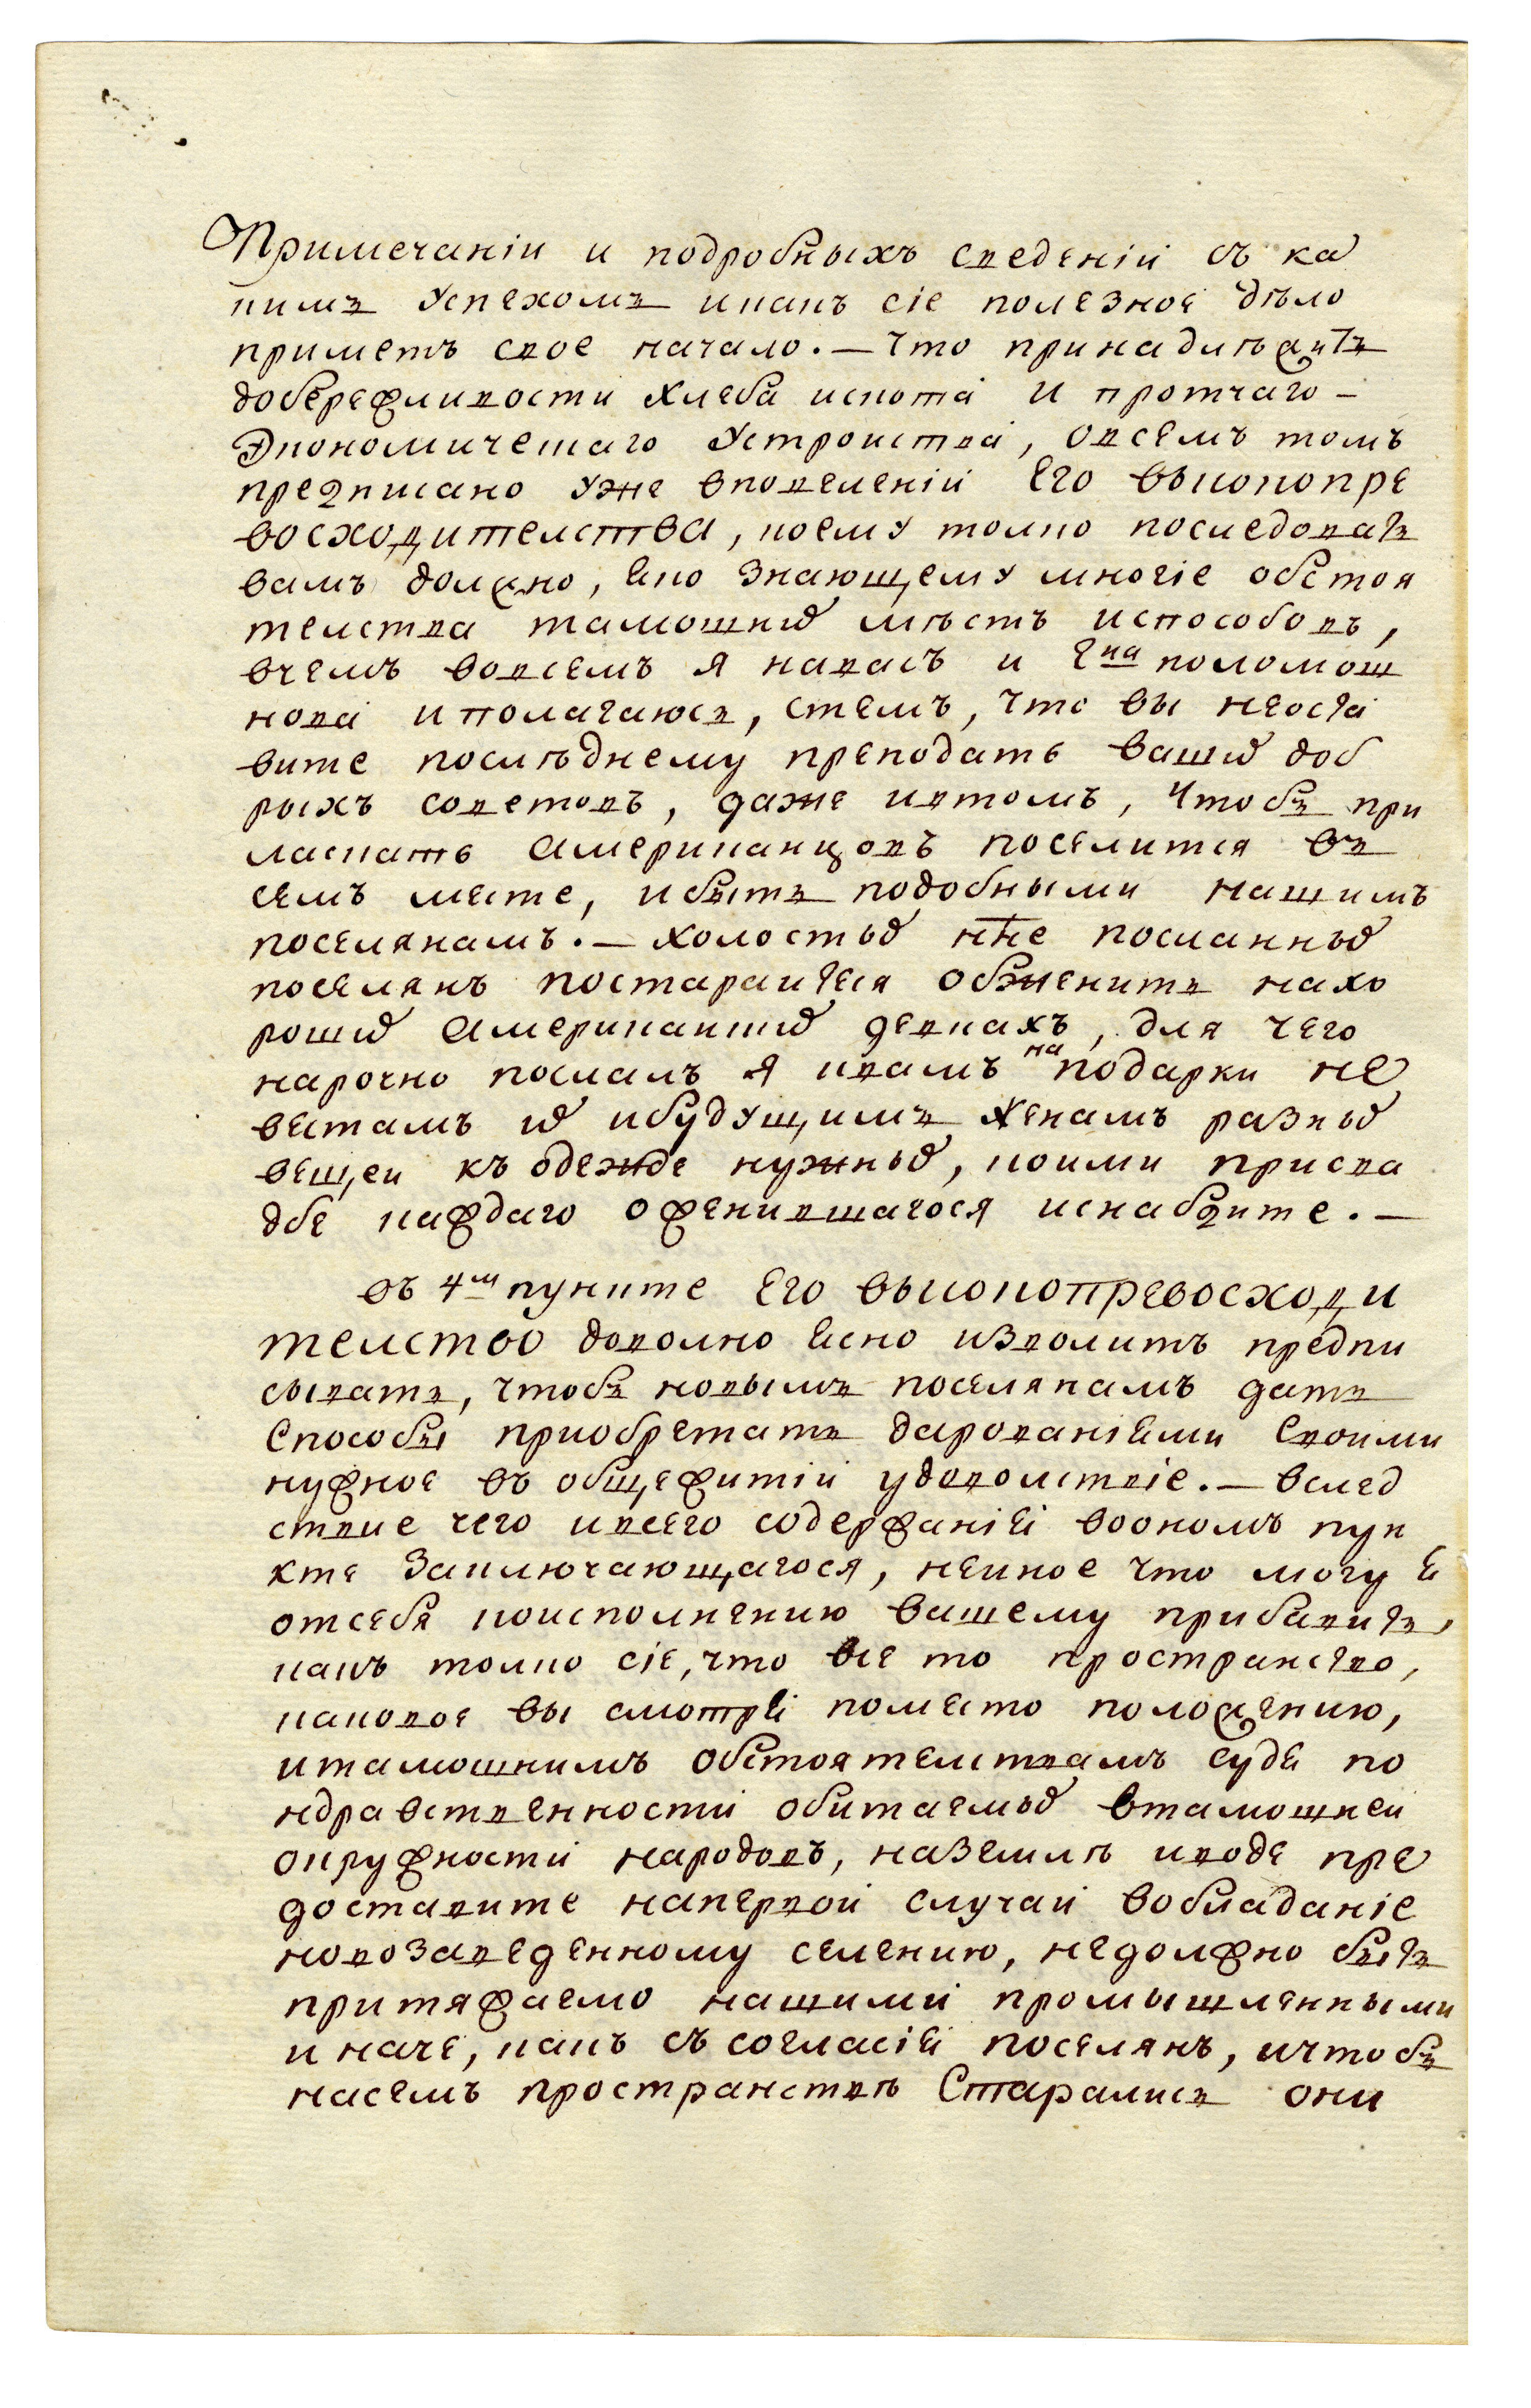 Примечаніи и подробныхъ сведеніи съ ка
кимъ успехомъ и какъ сіе полезное дѣло
приметъ свое начало. — Что принадлѣжитъ
добережливости хлеба искота и протчаго —
Экономическаго устроиства, овсемъ томъ
предписано уже вповелеHіи Его высокопре
восходителства, коему толко последовать
вамъ должно, яко знающему многіе обстоя
телства тамошнихъ мѣстъ испособовъ,
вчемъ вовсемъ я навасъ и Е:ка поломош
нова и полагаюсь, стемъ, что вы неоста
вите послѣднему преподать вашихъ доб
рыхъ советовъ, даже ивтомъ, чтобъ при
ласкать Американцовъ поселится въ
семъ месте, и быть подобными нашимъ
поселянамъ. — холостыхъ нне посланныхъ
поселянъ постараитеся обженить нахо
рошихъ Американскихъ девкахъ, для чего
нарочно послалъ я квамъ на подарки не
вестамъ ихъ ибудущимъ женамъ разныхъ
вещеи къ одежде нужныхъ, коими присва
дбе каждаго оженившагося иснабдите. —
Въ 4м пункте Его высокопревосходи
телство доволно ясно изволитъ предпи
сывать, чтобъ новымъ поселянамъ дать
способы приобретать дарованіями своими
нужное въ общежитіи удоволствіе. — Вслед
ствие чего ивсего содержанія воономъ пун
кте заключающагося, неиное что могу я
отсебя коисполнению вашему прибавить,
какъ толко сіе, что все то пространство,
каковое вы смотря поместо положению,
итамошнимъ обстоятелствамъ судя по
ндравственности обитаемыхъ втамошнеи
окружности народовъ, наземлѣ иводе пре
доставите напервои случаи вобладаніе
новозаведенному селению, недолжно быть
притяжаемо нашими промышленными
иначе, какъ съ согласія поселянъ, ичтобъ
насемъ пространствѣ старались они